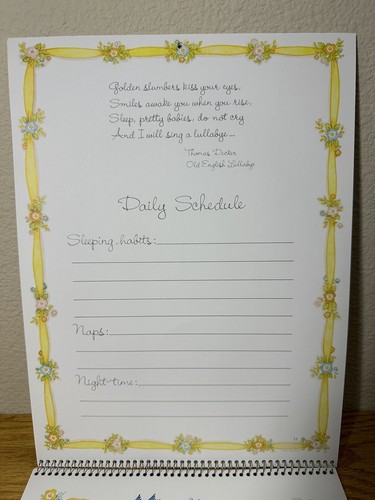 Golden slumbers kiss your eyes,
Smiles awake you when you rise,
Sleep, pretty babies, do not cry
And I will sing a lullabye...
Thomas Decker
Old English Lullabye
Daily Schedule
Sleeping habits:
Naps:
Night-time: